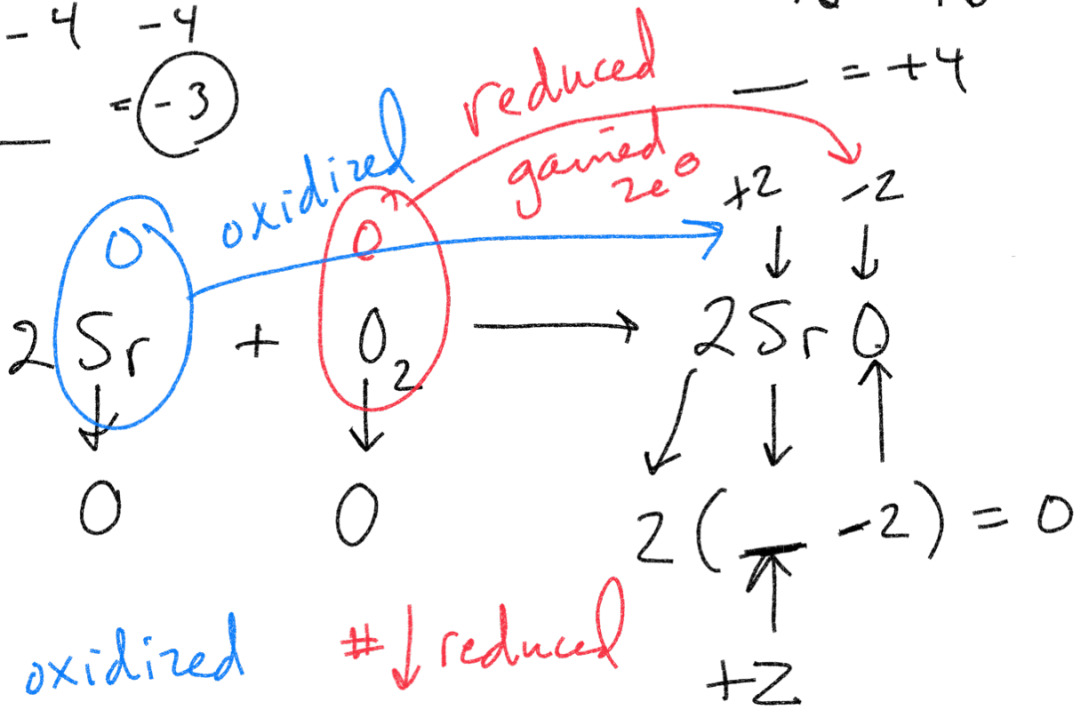 -4 -4
= -3
reduced
___ = +4
oxidized
gained
2e⊖
+2 -2
0 0
2Sr + O₂ → 2SrO
0 0 2( __ -2) = 0
oxidized # ↓ reduced
+2